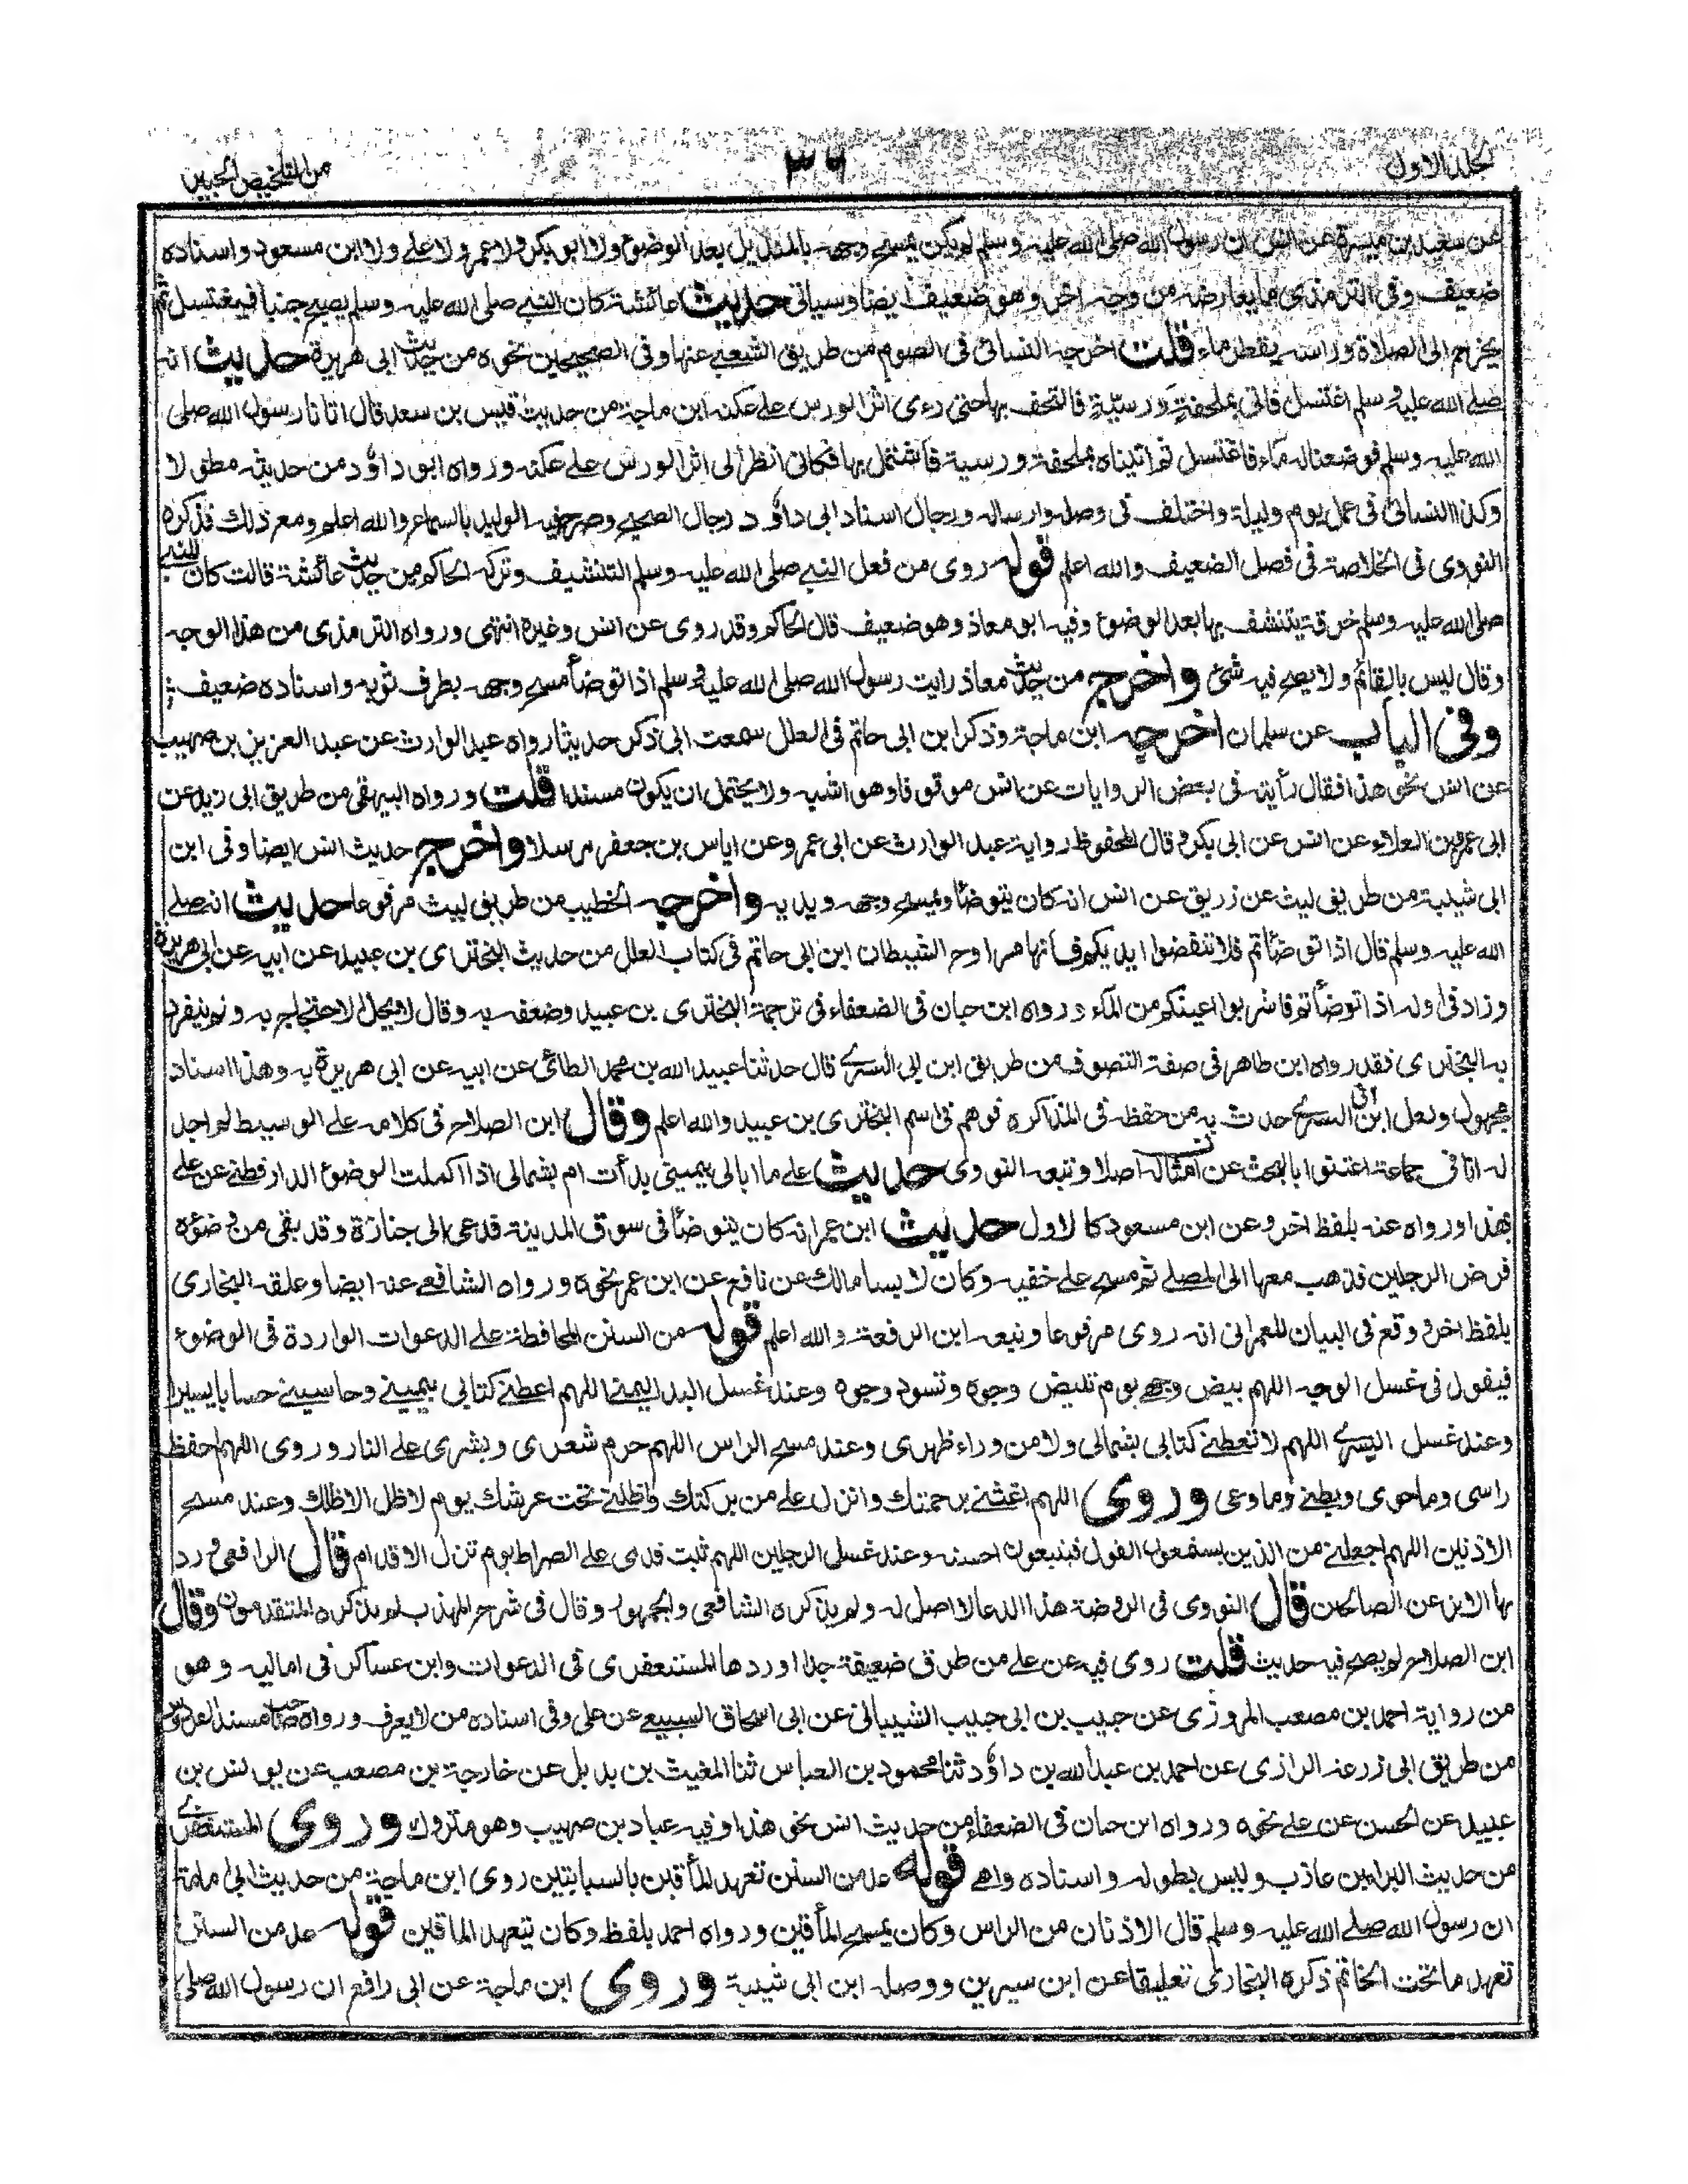 الجلد الاول
٣٦
من التلخيص الحبير
عن سعيد بن ميسرة عن انس ان رسول الله صلى الله عليه وسلم لم يكن يمسح وجهه بالمنديل بعد الوضوء ولا ابو بكر ولا عمر ولا على ولا ابن مسعود واسناده
ضعيف وفى الترمذى ما يعارضه من وجه اخر وهو ضعيف ايضا وسياتى حديث عائشة كان النبى صلى الله عليه وسلم يصبح جنبا فيغتسل ثم
يخرج الى الصلاة وراسه يقطر ماء قلت اخرجه النسائى فى الصوم من طريق الشعبى عنها وفى الصحيحين نحوه من حديث ابى هريرة حديث انه
صلى الله عليه وسلم اغتسل فاتى بملحفة ورسية فالتحف بها حتى رءى اثر الورس على عكنه ابن ماجة من حديث قيس بن سعد قال اتانا رسول الله صلى
الله عليه وسلم فوضعنا له ماء فاغتسل ثم اتيناه بملحفة ورسية فاشتمل بها فكانى انظر الى اثر الورس على عكنه ورواه ابو داؤد من حديثه مطولا
وكذا النسائى فى عمل يوم وليلة واختلف فى وصله وارساله ورجال اسناد ابى داؤد رجال الصحيح وصرح فيه الوليد بالسماع والله اعلم ومع ذلك فذكره
النووى فى الخلاصة فى فصل الضعيف والله اعلم قوله روى من فعل النبى صلى الله عليه وسلم التنشيف وتركه الحاكم من حديث عائشة قالت كان للنبى
صلى الله عليه وسلم خرقة يتنشف بها بعد الوضوء وفيه ابو معاذ وهو ضعيف قال الحاكم وقد روى عن انس وغيره انتهى ورواه الترمذى من هذا الوجه
وقال ليس بالقائم ولا يصح فيه شئ واخرج من حديث معاذ رايت رسول الله صلى الله عليه وسلم اذا توضأ مسح وجهه بطرف ثوبه واسناده ضعيف
وفى الباب عن سلمان اخرجه ابن ماجة وذكر ابن ابى حاتم فى العلل سمعت ابى ذكر حديثا رواه عبد الوارث عن عبد العزيز بن صهيب
عن انس نحو هذا فقال رأيته فى بعض الروايات عن انس موقوفا وهو اشبه ولا يحتمل ان يكون مسندا قلت ورواه البيهقى من طريق ابى زيد عن
ابى عمرو بن العلاء عن انس عن ابى بكر و قال المحفوظ رواية عبد الوارث عن ابى عمرو عن اياس بن جعفر مرسلا واخرج حديث انس ايضا وفى ابن
ابى شيبة من طريق ليث عن زريق عن انس انه كان يتوضأ ويمسح وجهه ويديه واخرجه الخطيب من طريق ليث مرفوعا حديث انه صلى
الله عليه وسلم قال اذا توضأتم فلا تنفضوا ايديكم فانها مراوح الشيطان ابن ابى حاتم فى كتاب العلل من حديث البخترى بن عبيد عن ابيه عن ابى هريرة
وزاد فى اوله اذا توضأتم فاشربوا اعينكم من الماء ورواه ابن حبان فى الضعفاء فى ترجمة البخترى بن عبيد وضعفه به وقال لا يحل الاحتجاج به ولم ينفرد
به البخترى فقد رواه ابن طاهر فى صفة التصوف من طريق ابن ابى السرى قال حدثنا عبيد الله بن محمد الطائى عن ابيه عن ابى هريرة به وهذا اسناد
مجهول ولعل ابن ابى السرى حدث به من حفظه فى المذاكرة فوهم فى اسم البخترى بن عبيد والله اعلم وقال ابن الصلاح فى كلامه على الوسيط لم اجد
له انا فى جماعة اعتنوا بالبحث عن امثاله اصلا وتبعه النووى حديث على ما ابالى بيمينى بدأت ام بشمالى اذا اكملت الوضوء الدارقطنى عن على
بهذا ورواه عنه بلفظ اخر وعن ابن مسعود كالاول حديث ابن عمر انه كان يتوضأ فى سوق المدينة فدعى الى جنازة وقد بقى من وضوئه
فرض الرجلين فذهب معها الى المصلى ثم مسح على خفيه وكان لابسا مالك عن نافع عن ابن عمر نحوه ورواه الشافعى عنه ايضا وعلقه البخارى
بلفظ اخر ووقع فى البيان للعمرانى انه روى مرفوعا وتبعه ابن الرفعة والله اعلم قوله من السنن المحافظة على الدعوات الواردة فى الوضوء
فيقول فى غسل الوجه اللهم بيض وجهى يوم تبيض وجوه وتسود وجوه وعند غسل اليد اليمنى اللهم اعطنى كتابى بيمينى وحاسبنى حسابا يسيرا
وعند غسل اليسرى اللهم لا تعطنى كتابى بشمالى ولا من وراء ظهرى وعند مسح الراس اللهم حرم شعرى وبشرى على النار وروى اللهم احفظ
راسى وما حوى وبطنى وما وعى وروى اللهم اغثنى برحمتك وانزل على من بركتك واظلنى تحت عرشك يوم لا ظل الا ظلك وعند مسح
الاذنين اللهم اجعلنى من الذين يستمعون القول فيتبعون احسنه وعند غسل الرجلين اللهم ثبت قدمى على الصراط يوم تزل الاقدام قال الرافعى ورد
بها الاثر عن الصالحين قال النووى فى الروضة هذا الدعا لا اصل له ولم يذكره الشافعى والجمهور وقال فى شرح المهذب لم يذكره المتقدمون وقال
ابن الصلاح لم يصح فيه حديث قلت روى فيه عن على من طرق ضعيفة جدا اوردها المستغفرى فى الدعوات وابن عساكر فى اماليه وهو
من رواية احمد بن مصعب المروزى عن حبيب بن ابى حبيب الشيبانى عن ابى اسحاق السبيعى عن على وفى اسناده من لا يعرف ورواه صاحب مسند الفردوس
من طريق ابى زرعة الرازى عن احمد بن عبد الله بن داؤد ثنا محمود بن العباس ثنا المغيث بن بديل عن خارجة بن مصعب عن يونس بن
عبيد عن الحسن عن على نحوه ورواه ابن حبان فى الضعفاء من حديث انس نحو هذا وفيه عباد بن صهيب وهو متروك وروى المستغفرى
من حديث البراء بن عازب وليس بطوله واسناده واهى قوله عد من السنن تعهد المأقين بالسبابتين روى ابن ماجة من حديث ابى امامة
ان رسول الله صلى الله عليه وسلم قال الاذنان من الراس وكان يمسح المأقين ورواه احمد بلفظ وكان يتعهد الماقين قوله عد من السنن
تعهد ما تحت الخاتم ذكره البخارى تعليقا عن ابن سيرين ووصله ابن ابى شيبة وروى ابن ماجة عن ابى رافع ان رسول الله صلى